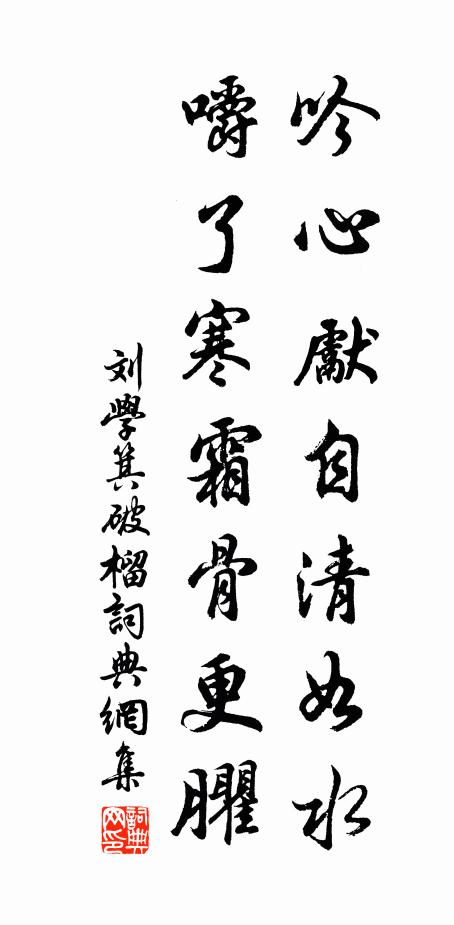 吟心獻自清如水
嚼了寒霜骨更臞
刘學箕破榴詞典網集
詞典网印